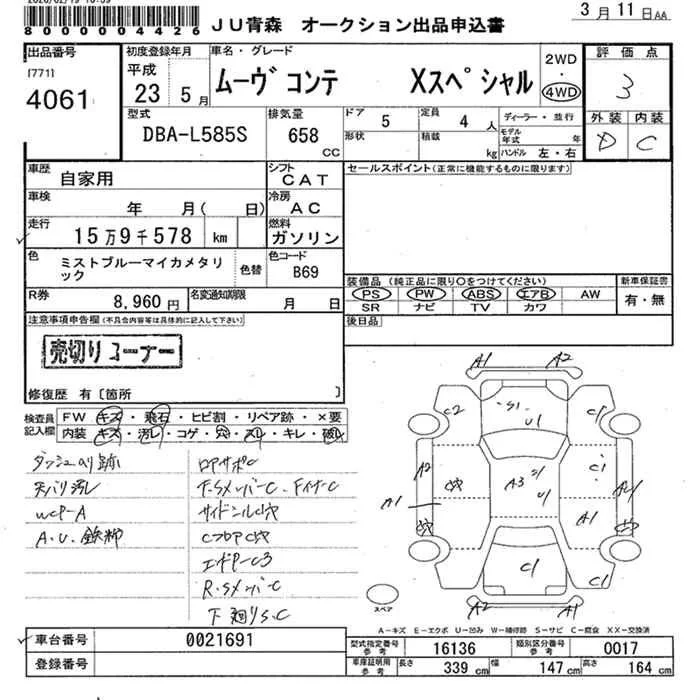 8000004426
JU青森 オークション出品申込書
3月11日AA
出品番号
[771]
4061
初度登録年月
平成
23 5月
車名・グレード
ムーヴ コンテ Xスペシャル
2WD
・
4WD
評価点
3
外装 内装
D C
型式
DBA-L585S
排気量
658
CC
ドア
5
定員
4人
形状
積載
kg
ディーラー・並行
モデル年式 年
ハンドル 左・右
車歴
自家用
シフト
CAT
車検
年 月( 日)
冷房
AC
走行
15万9千578 km
燃料
ガソリン
色
ミストブルーマイカメタリ
ック
色替
色コード
B69
R券
8,960円
名変通知期限
月 日
セールスポイント(正常に機能するものに限ります)
装備品(純正品に限り○をつけてください)
PS PW ABS エアB AW
SR ナビ TV カワ
新車保証書
有・無
後日品
注意事項申告欄(不具合内容等は具体的に記入して下さい)
売切りコーナー
修復歴 有〔箇所 〕
検査員
記入欄
FW キズ・飛石・ヒビ割・リペア跡・×要
内装 キズ・汚レ・コゲ・穴・スレ・キレ・破レ
ダッシュのり跡
天バリ汚レ
WCP-A
A.U.鉄粉
ロアサポC
F.Sメンバー C・FインナーC
サイドシルC穴
CフロアC穴
エンドP-C3
R.SメンバーC
下廻りS.C
A1 A2
C2 S1 U1 C1
A2 A3 U1 C1 A1
A1 C穴 A1 C穴
C1 C1
A2 A1
スペア
A-キズ E-エクボ U-凹み W-補修跡 S-サビ C-腐食 XX-交換済
車台番号 0021691
登録番号
型式指定番号
参考
16136
類別区分番号
参考
0017
車庫証明用
参考
長さ 339cm 幅 147cm 高さ 164cm